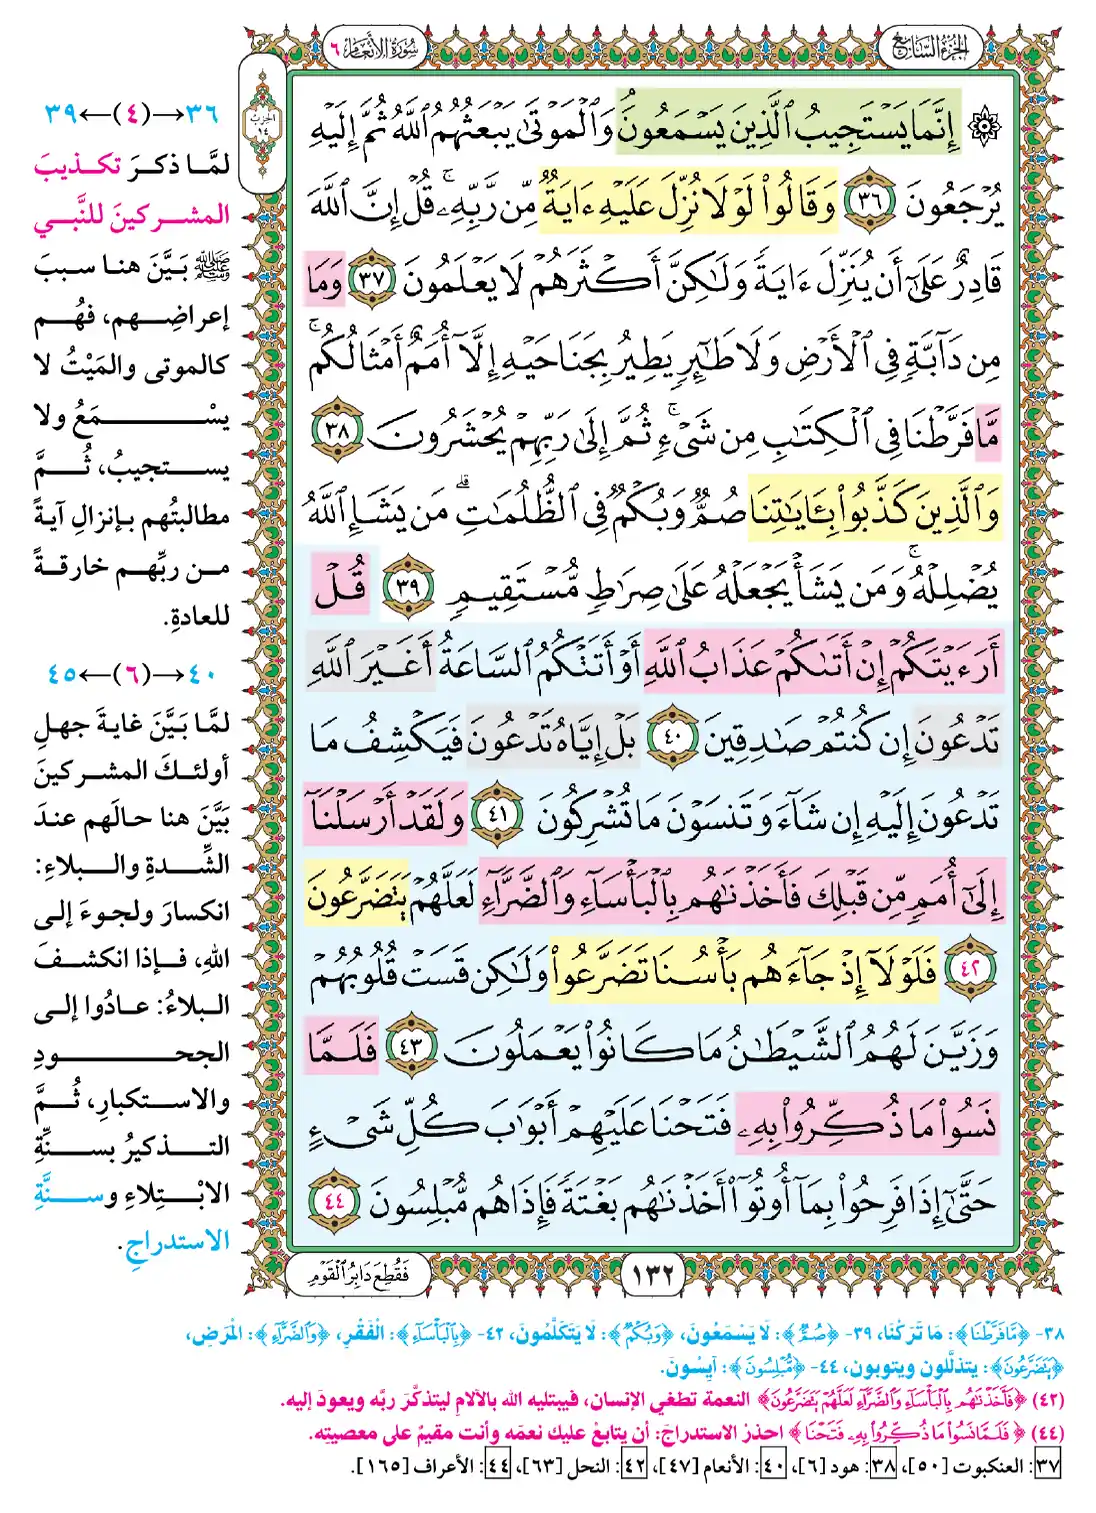 الجزء السابع
سورة الأنعام ٦
الحزب
١٤
۞ إِنَّمَا يَسْتَجِيبُ ٱلَّذِينَ يَسْمَعُونَۘ وَٱلْمَوْتَىٰ يَبْعَثُهُمُ ٱللَّهُ ثُمَّ إِلَيْهِ
يُرْجَعُونَ ٣٦ وَقَالُوا۟ لَوْلَا نُزِّلَ عَلَيْهِ ءَايَةٌ مِّن رَّبِّهِۦۚ قُلْ إِنَّ ٱللَّهَ
قَادِرٌ عَلَىٰٓ أَن يُنَزِّلَ ءَايَةً وَلَٰكِنَّ أَكْثَرَهُمْ لَا يَعْلَمُونَ ٣٧ وَمَا
مِن دَآبَّةٍ فِى ٱلْأَرْضِ وَلَا طَٰٓئِرٍ يَطِيرُ بِجَنَاحَيْهِ إِلَّآ أُمَمٌ أَمْثَالُكُمۚ
مَّا فَرَّطْنَا فِى ٱلْكِتَٰبِ مِن شَىْءٍۚ ثُمَّ إِلَىٰ رَبِّهِمْ يُحْشَرُونَ ٣٨
وَٱلَّذِينَ كَذَّبُوا۟ بِـَٔايَٰتِنَا صُمٌّ وَبُكْمٌ فِى ٱلظُّلُمَٰتِۗ مَن يَشَإِ ٱللَّهُ
يُضْلِلْهُۚ وَمَن يَشَأْ يَجْعَلْهُ عَلَىٰ صِرَٰطٍ مُّسْتَقِيمٍ ٣٩ قُلْ
أَرَءَيْتَكُمْ إِنْ أَتَىٰكُمْ عَذَابُ ٱللَّهِ أَوْ أَتَتْكُمُ ٱلسَّاعَةُ أَغَيْرَ ٱللَّهِ
تَدْعُونَ إِن كُنتُمْ صَٰدِقِينَ ٤٠ بَلْ إِيَّاهُ تَدْعُونَ فَيَكْشِفُ مَا
تَدْعُونَ إِلَيْهِ إِن شَآءَ وَتَنسَوْنَ مَا تُشْرِكُونَ ٤١ وَلَقَدْ أَرْسَلْنَآ
إِلَىٰٓ أُمَمٍ مِّن قَبْلِكَ فَأَخَذْنَٰهُم بِٱلْبَأْسَآءِ وَٱلضَّرَّآءِ لَعَلَّهُمْ يَتَضَرَّعُونَ
٤٢ فَلَوْلَآ إِذْ جَآءَهُم بَأْسُنَا تَضَرَّعُوا۟ وَلَٰكِن قَسَتْ قُلُوبُهُمْ
وَزَيَّنَ لَهُمُ ٱلشَّيْطَٰنُ مَا كَانُوا۟ يَعْمَلُونَ ٤٣ فَلَمَّا
نَسُوا۟ مَا ذُكِّرُوا۟ بِهِۦ فَتَحْنَا عَلَيْهِمْ أَبْوَٰبَ كُلِّ شَىْءٍ
حَتَّىٰٓ إِذَا فَرِحُوا۟ بِمَآ أُوتُوٓا۟ أَخَذْنَٰهُم بَغْتَةً فَإِذَا هُم مُّبْلِسُونَ ٤٤
١٣٢
فَقُطِعَ دَابِرُ ٱلْقَوْمِ
٣٦→(٤)←٣٩
لمَّا ذكرَ تكذيبَ
المشركينَ للنَّبي
ﷺ بَيَّنَ هنا سببَ
إعراضِهم، فهُم
كالموتى والمَيْتُ لا
يسْمَعُ ولا
يستجيبُ، ثُمَّ
مطالبتُهم بإنزالِ آيةً
من ربِّهم خارقةً
للعادةِ.
٤٠→(٦)←٤٥
لمَّا بَيَّنَ غايةَ جهلِ
أولئكَ المشركينَ
بَيَّنَ هنا حالَهم عندَ
الشِّدةِ والبلاءِ:
انكسارَ ولجوءَ إلى
اللهِ، فإذا انكشفَ
البلاءُ: عادُوا إلى
الجحودِ
والاستكبارِ، ثُمَّ
التذكيرُ بسنَّةِ
الابْتِلاءِ وسنَّةِ
الاستدراجِ.
٣٨- ﴿مَّا فَرَّطْنَا﴾: مَا تَرَكْنَا، ٣٩- ﴿صُمٌّ﴾: لَا يَسْمَعُونَ، ﴿وَبُكْمٌ﴾: لَا يَتَكَلَّمُونَ، ٤٢- ﴿بِٱلْبَأْسَآءِ﴾: الْفَقْرِ، ﴿وَٱلضَّرَّآءِ﴾: الْمَرَضِ،
﴿يَتَضَرَّعُونَ﴾: يتذلَّلون ويتوبون، ٤٤- ﴿مُّبْلِسُونَ﴾: آيِسُونَ.
(٤٢) ﴿فَأَخَذْنَٰهُم بِٱلْبَأْسَآءِ وَٱلضَّرَّآءِ لَعَلَّهُمْ يَتَضَرَّعُونَ﴾ النعمة تطغي الإنسان، فيبتليه الله بالآلامِ ليتذكَّرَ ربَّه ويعودَ إليه.
(٤٤) ﴿فَلَمَّا نَسُوا۟ مَا ذُكِّرُوا۟ بِهِۦ فَتَحْنَا﴾ احذرْ الاستدراجَ: أن يتابعَ عليك نعمَه وأنت مقيمٌ على معصيتِه.
٣٧: العنكبوت [٥٠]، ٣٨: هود [٦]، ٤٠: الأنعام [٤٧]، ٤٢: النحل [٦٣]، ٤٤: الأعراف [١٦٥].